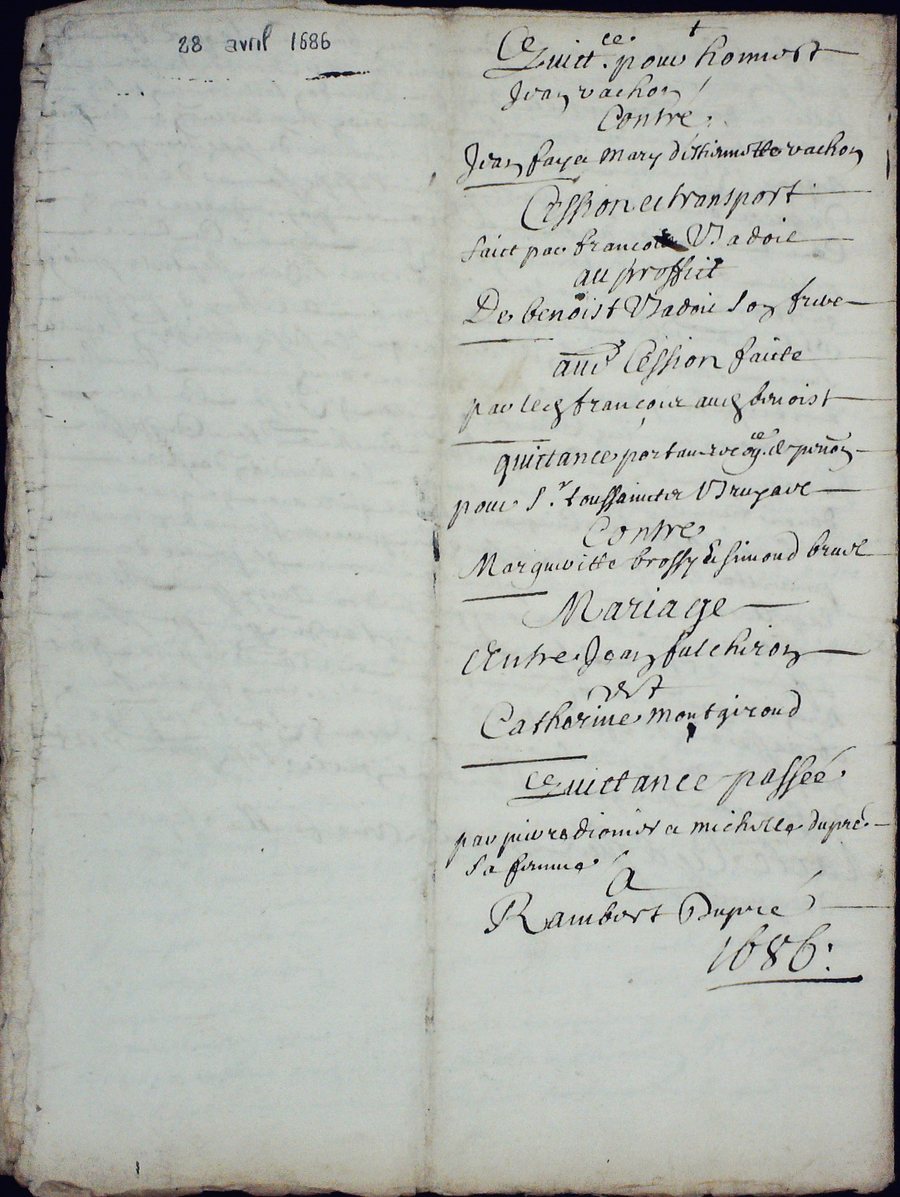 28 avril 1686
Quictce. pour honnest
Jean vachon
Contre
Jean faye mary d'estiennette vachon
Cession et transport
faict par francois Viadoie
au proffict
De benoist Viadoie son frere
autre Cession faicte
par led francois aud benoist
quictance portant
pour Sr. toussainct
Contre
Margueritte brossy & simond bruel
Mariage
Entre Jean falchiron
Et
Catherine montgiroud
Quictance passée
par pierre dionier et michelle dupré
sa femme
A
Rambert Dupré
1686.